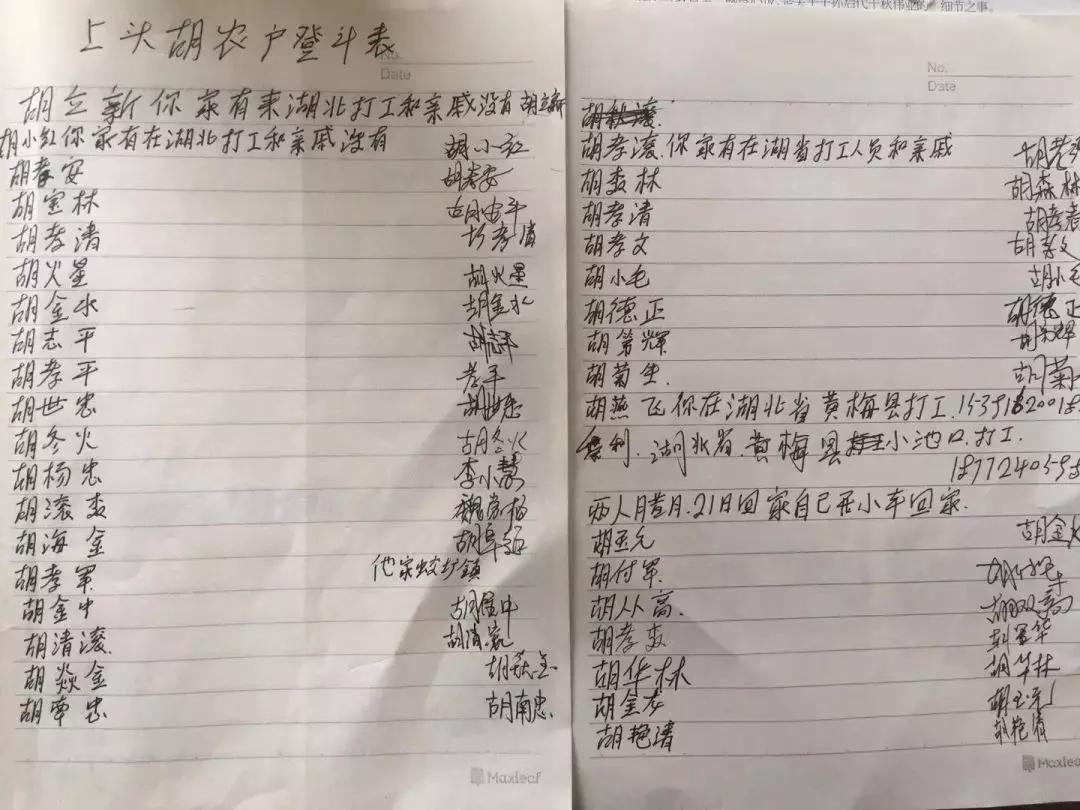 上头胡农户登斗表
No.
Date
胡立新你家有来湖北打工和亲戚没有 胡立新
胡小红你家有在湖北打工和亲戚没有 胡小红
胡孝安 胡孝安
胡宝林
胡孝清
胡火星 胡火星
胡金水 胡金水
胡志平 胡志平
胡孝平 孝平
胡世忠 胡世忠
胡冬火 胡冬火
胡杨忠 李小慧
胡滚
胡海金
胡孝军
胡金中
胡清滚
胡焱金
胡南忠 胡南忠
Maxleaf
细节之事。
No.
Date
胡
胡孝滚.你家有在湖省打工人员和亲戚
胡森林 胡森林
胡孝清
胡孝文 胡孝文
胡小毛 胡小毛
胡德正 胡德正
胡第辉
胡菊生. 胡菊
胡燕飞你在湖北省黄梅县打工.
利.湖北省.黄梅县小池口.打工.
两人腊月.21日回家自己开小车回家.
胡玉元 胡金火
胡付军.
胡从高. 胡双高
胡孝 胡军华
胡华林 胡华林
胡金
胡艳清 胡艳清
Maxleaf